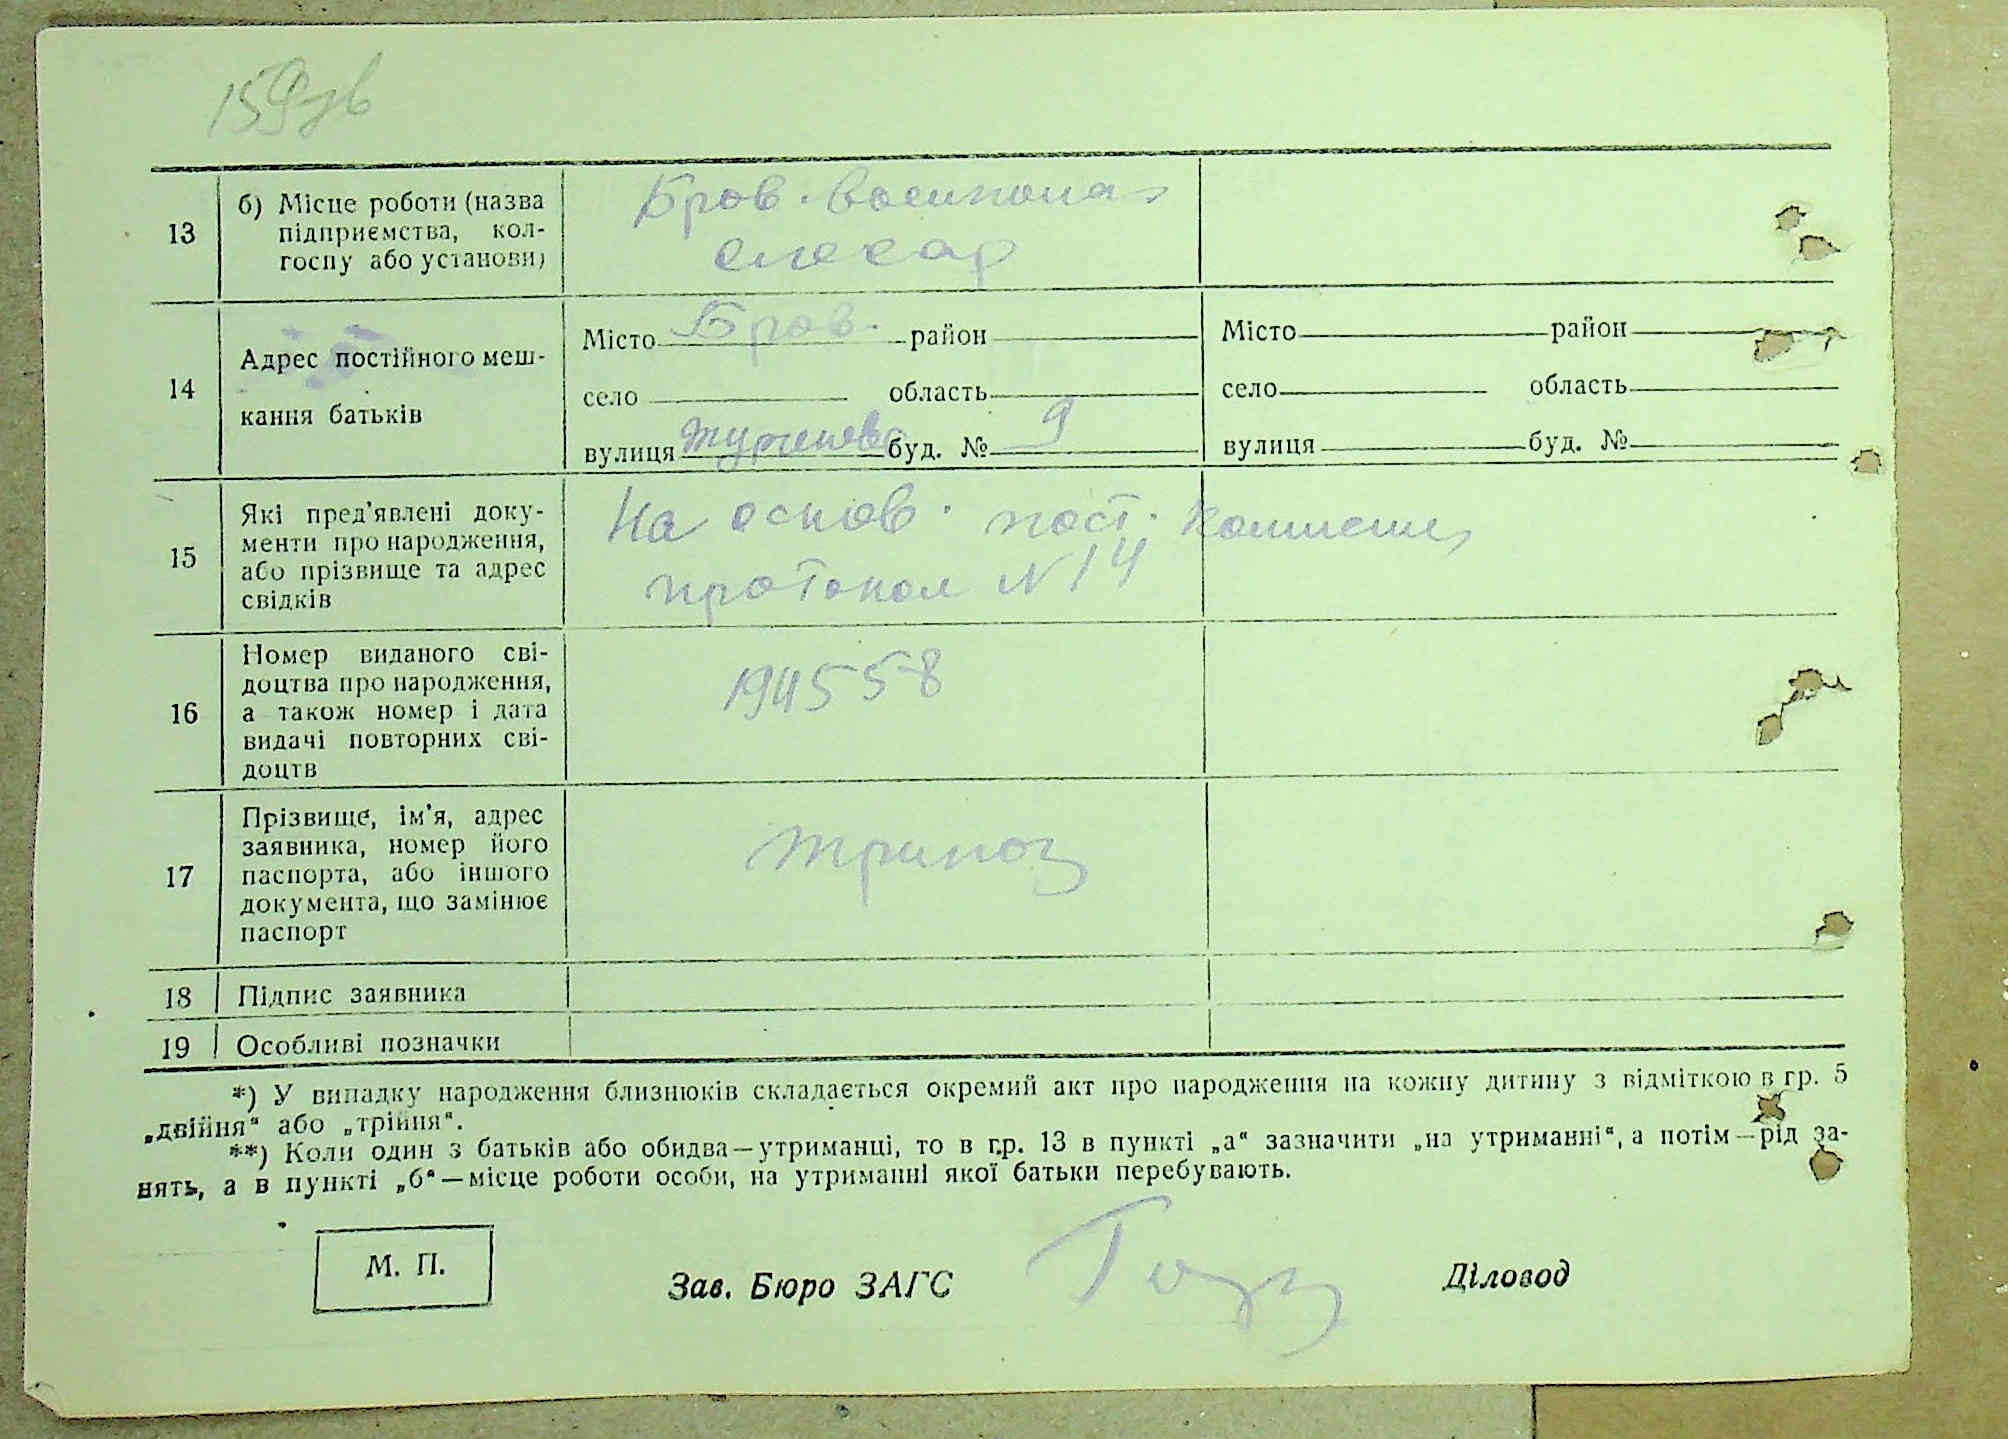 159зв
13
б) Місце роботи (назва
підприємства, кол-
госпу або установи)
Бров.
слесар
14
Адрес постійного меш-
кання батьків
Місто Бров. район
село область
вулиця буд. № 9
Місто район
село область
вулиця буд. №
15
Які пред'явлені доку-
менти про народження,
або прізвище та адрес
свідків
На основ. пост. комисии
протокол N 14
16
Номер виданого сві-
доцтва про народження,
а також номер і дата
видачі повторних сві-
доцтв
194558
17
Прізвище, ім'я, адрес
заявника, номер його
паспорта, або іншого
документа, що замінює
паспорт
18 Підпис заявника
19 Особливі позначки
*) У випадку народження близнюків складається окремий акт про народження на кожну дитину з відміткою в гр. 5
„двійня“ або „трійня“.
**) Коли один з батьків або обидва—утриманці, то в гр. 13 в пункті „а“ зазначити „на утриманні“, а потім—рід за-
нять, а в пункті „б“—місце роботи особи, на утриманні якої батьки перебувають.
М. П.
Зав. Бюро ЗАГС
Діловод